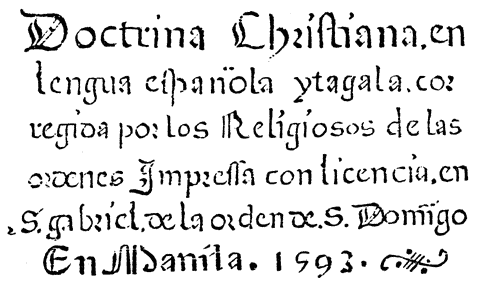 Doctrina Christiana, en
lengua eſpañola ytagala, cor
regida por los Religiosos de las
ordenes Impreſſa con licencia, en
S. gabriel, de la orden de. S. Domīgo
En Manila. 1593.